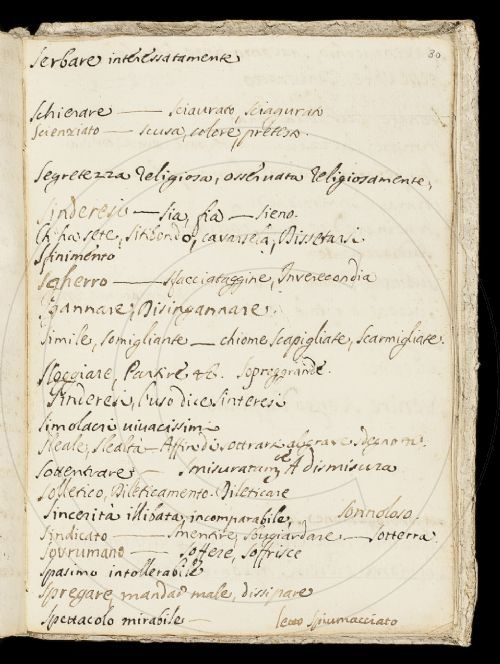 30
Serbare interessatamente
Schierare — sciaurato, sciagurato
Scienziato — scusa, colore, pretesa.
Segretezza religiosa, osservata religiosamente,
Sinderesi — sia, fia — sieno.
Chi ha sete, sitibondo, cavarsela, Dissetarsi.
Sfinimento
Sgherro — sfacciataggine, Inverecondia
Spannare, Disingannare.
Simile, somigliante — chiome scapigliate, scarmigliate.
Sloggiare, Partire &c. Sopraggrande.
Sinderesi, l'uso dice sinteresi
Simolacri vivacissimi
Sleale, slealtà — Affin di sottrarsi al grave
Sottentrare — smisuratam.te A dismisura
Solletico, Dileticamento. Dileticare
Sincerità illibata, incomparabile, Sonnoloso
Sindicato — smentire, sbugiardare — sotterra
Sovrumano — soffere, soffrisce
Spasimo intollerabile
Spregare, mandar male, dissipare
Spettacolo mirabile — letto spiumacciato